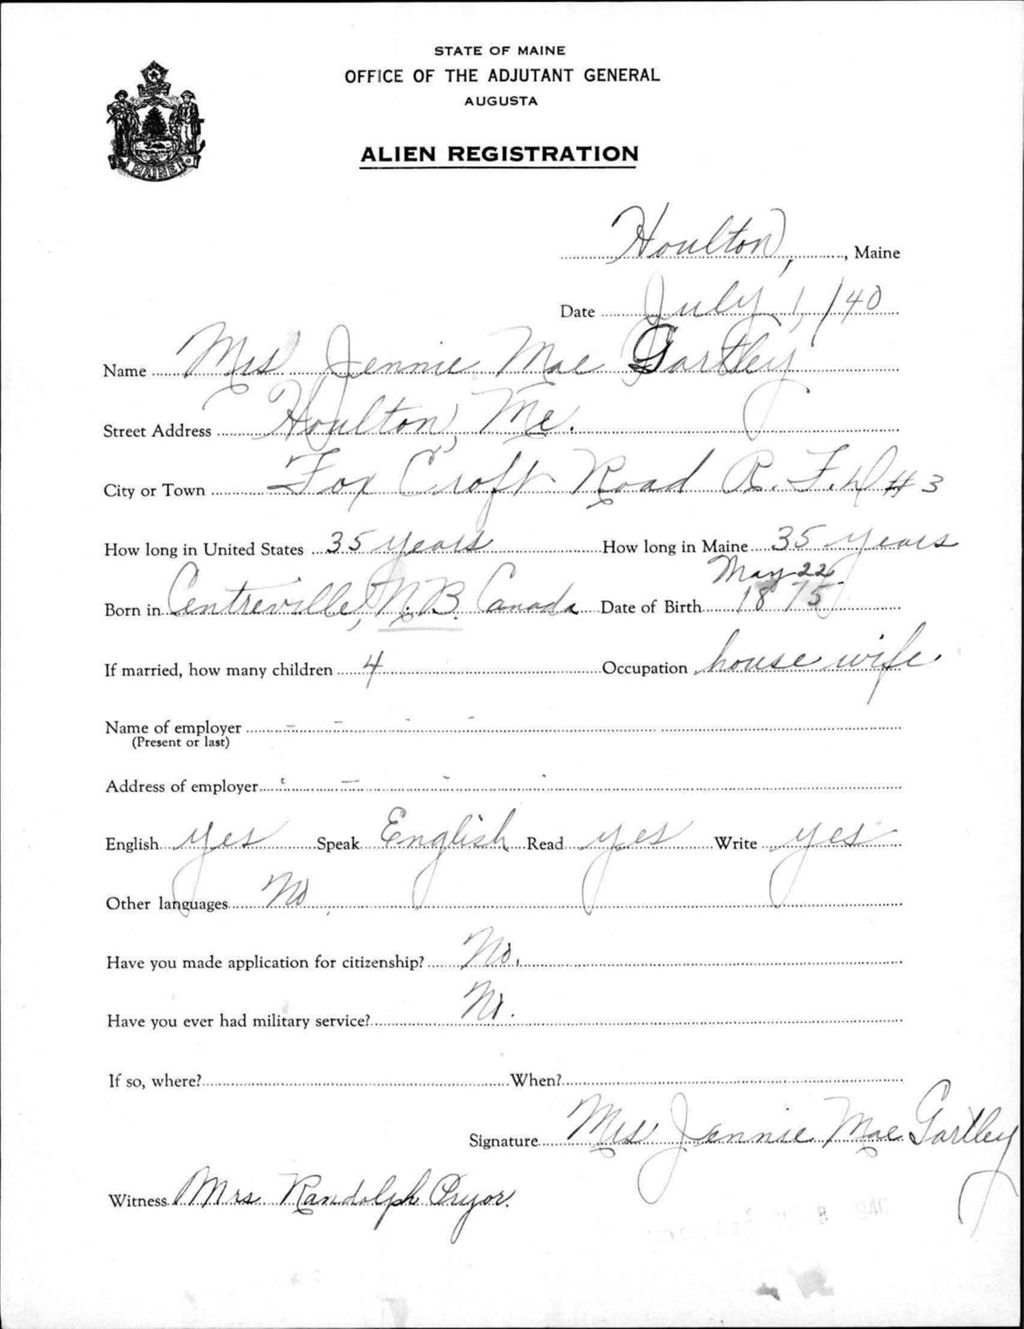 STATE OF MAINE
OFFICE OF THE ADJUTANT GENERAL
AUGUSTA
ALIEN REGISTRATION
MAINE
Houlton, , Maine
Date July 1, /40
Name Mrs Jennie Mae Gartley
Street Address Houlton, Me.
City or Town Fox Croft Road R.F.D #3
How long in United States 35 years How long in Maine 35 years
May 22
Born in Centreville, N.B. Canada Date of Birth 1875
If married, how many children 4 Occupation house wife
Name of employer - - - -
(Present or last)
Address of employer - - - -
English yes Speak English Read yes Write yes
Other languages No
Have you made application for citizenship? No.
Have you ever had military service? No.
If so, where? When?
Signature Mrs Jennie Mae Gartley
Witness Mrs Randolph Pryor.